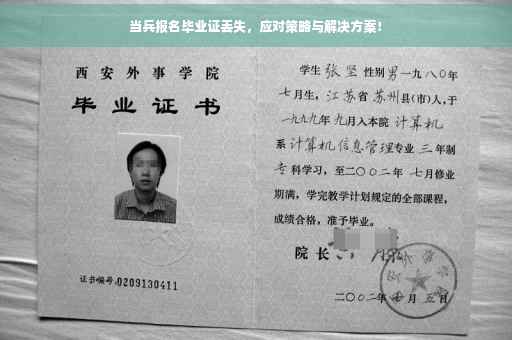 当兵报名毕业证丢失，应对策略与解决方案！
西安外事学院
毕业证书
证书编号:0209130411
学生 张坚 性别男 一九八〇年
七月生，江苏省 苏州县(市)人，于
一九九九年 九月入本院 计算机
系 计算机信息管理专业 三 年制
专科学习，至二〇〇二年 七月修业
期满，学完教学计划规定的全部课程，
成绩合格，准予毕业。
院长
二〇〇二年 七月 五日